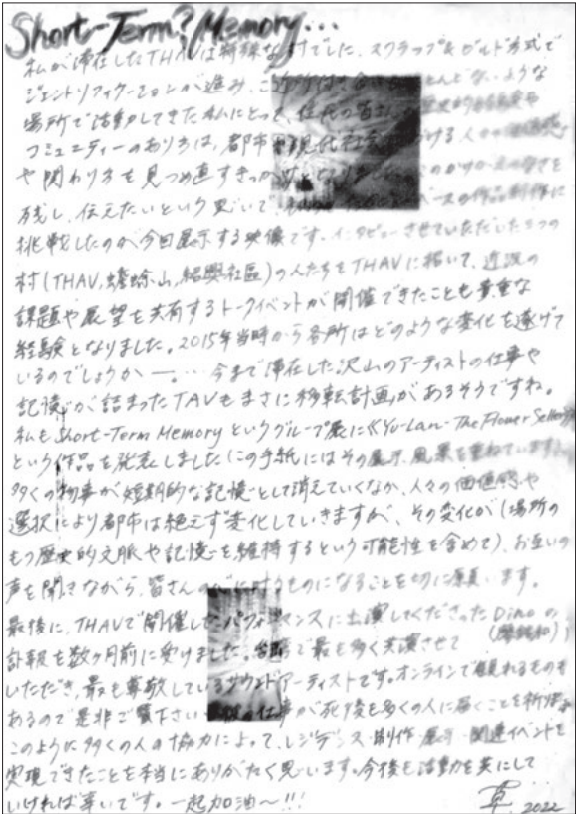 Short-Term? Memory...
私が滞在したTHAVは新鮮な村でした。スクラップ&ビルド方式で
ジェントリフィケーションが進み、
場所で活動してきた私にとって、住民の皆さん
コミュニティーのあり方は、都市 現代社会 ける人々の
や関わり方を見つめ直すきっかけとなりました。
残し、伝えたいという思いで、 ベースの作品制作に
挑戦したのが今回展示する映像です。インタビューさせていただいた3つの
村(THAV, 蟾蜍山, 紹興社區)の人たちをTHAVに招いて、近況の
課題や展望を共有するトークイベントが開催できたことも貴重な
経験となりました。2015年当時から各所はどのような変化を遂げて
いるのでしょうか—。… 今まで滞在した沢山のアーティストの仕事や
記憶が詰まったTAVもまさに移転計画があるそうですね。
私もShort-Term Memoryというグループ展に《Yu-Lan-The Flower Seller》
という作品を発表しました(この手紙にはその展示風景を重ねています)。
多くの物事が短期的な記憶として消えていくなか、人々の価値感や
選択により都市は絶えず変化していきますが、その変化が(場所の
もつ歴史的文脈や記憶を維持するという可能性を含めて)、お互いの
声を聞きながら、皆さんの ものになることを切に願います。
最後に、THAVで開催したパフォーマンスに出演してくださったDinoの
訃報を数ヶ月前に受けました。台湾で最も多く共演させて
いただき、最も尊敬しているサウンドアーティストです。オンラインで観れるものも
あるので是非ご覧下さい。 仕事が死後も多くの人に届くことを祈
このように多くの人の協力によって、レジデンス・制作・展示・関連イベントを
実現できたことを本当にありがたく思います。今後も活動を共にして
いければ幸いです。一起加油〜!!!
2022